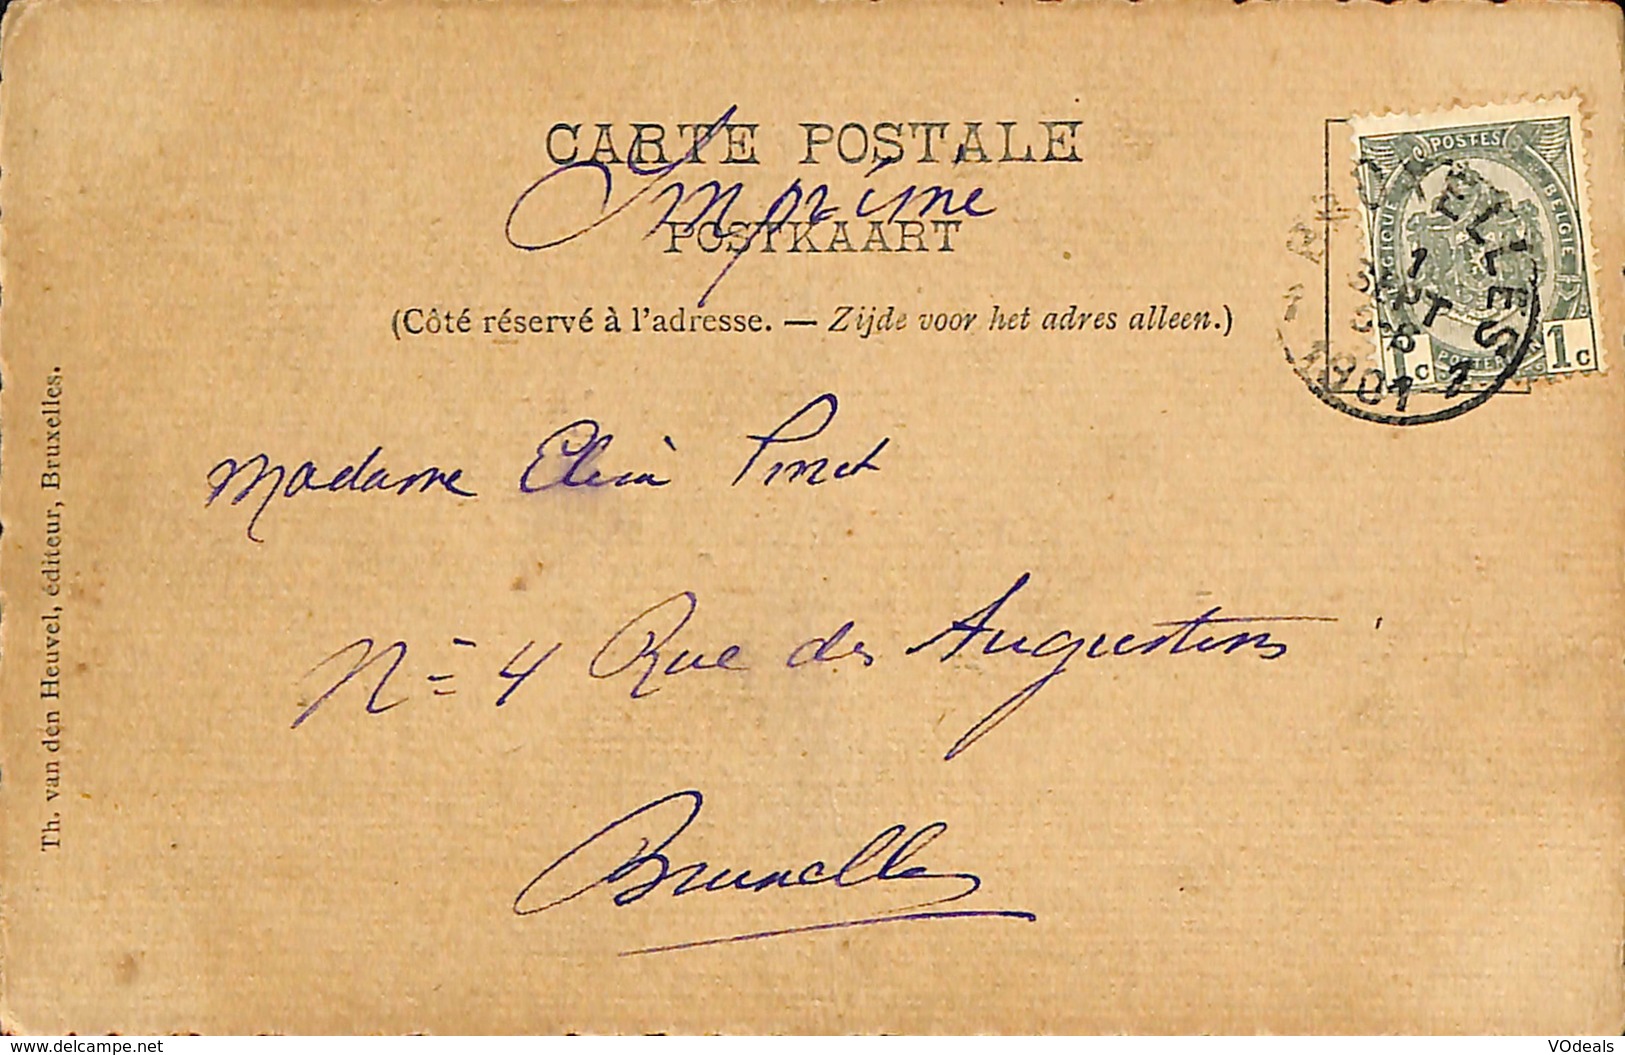 CARTE POSTALE
Imprimé
POSTKAART
(Côté réservé à l'adresse. — Zijde voor het adres alleen.)
POSTES
BELGIQUE BELGIE
1c 1c
POSTERIJEN
BRUXELLES 1
1 SEPT
1901
Madame Pinet
N= 4 Rue des Augustins
Bruxelles
Th. van den Heuvel, éditeur, Bruxelles.
www.delcampe.net
VOdeals